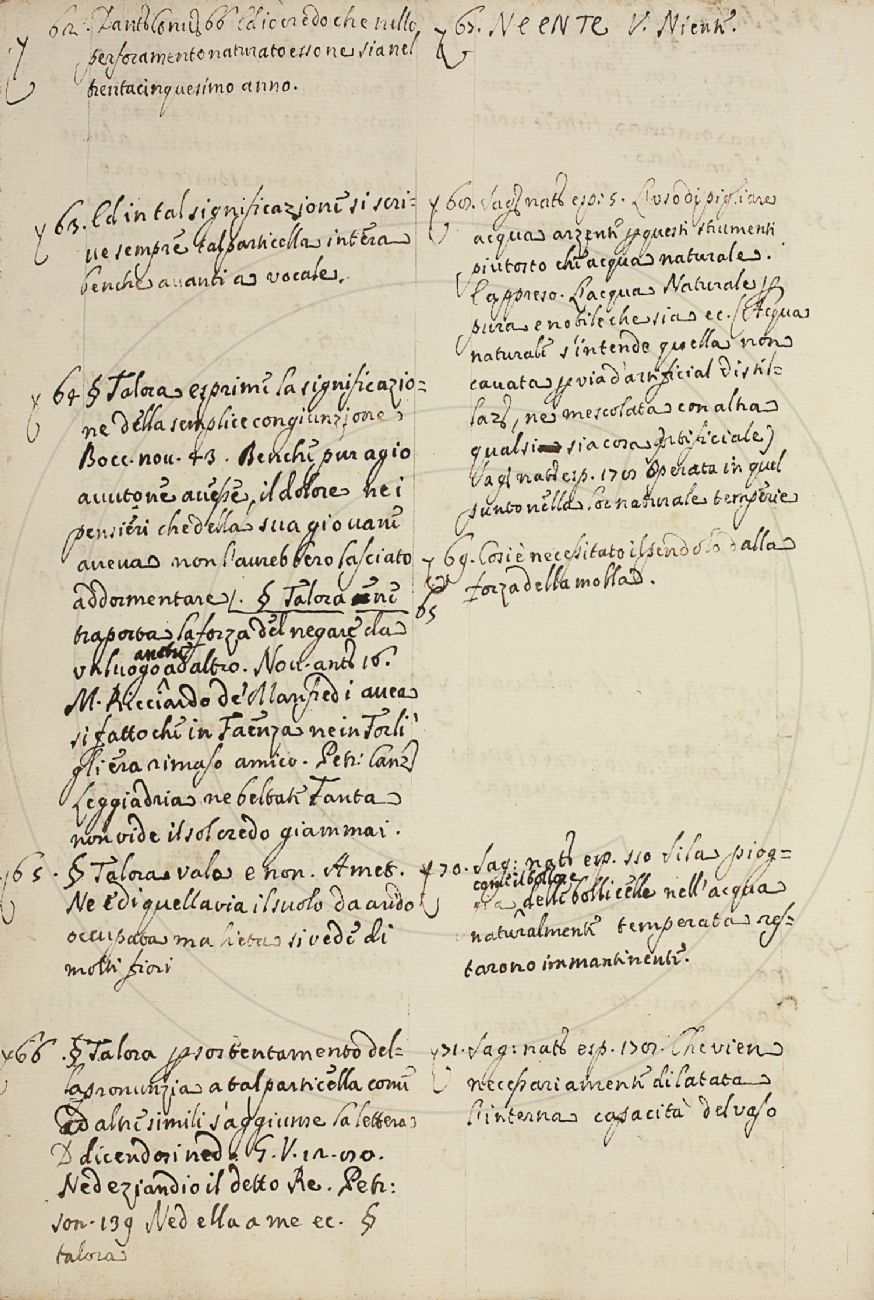 62. Tant. Comm. 66 Ed io credo che nello
perforamento naturato esso ne sia nel
trentacinquesimo anno.
63. Ed in tal significazione si scri=
ve sempre tal particella intera
benche avanti a vocale.
64 § Talora esprime la significazio=
ne della semplice congiunzione
Bocc. nov. 43. Benche pur agio
avutone avesse, il dolore ne i
pensieri che della sua giovane
aveva non l'avrebbero lasciato
addormentare. § Talora ne
trapporta la forza del negare da
un luogo anche ad altro. Nov. ant. 16.
M. Ricciardo de' Manfredi avea
si fatto che in Faenza ne in Forlì
gli era rimaso amico. Petr: Canz
Leggiadria ne beltate Tanta
non vide il sol credo giammai.
65. § Talora vale e non. Amet.
Ne è di quella via il suolo da arido
occupata ma lieta si vede di
molti fiori
66. § Talora p sostentamento del=
la pronunzia a tal particella come
ad altre simili s'aggiunse la lettera
D dicendosi ned. G. V. 12.
Ned eziandio il detto Re. Petr:
son. 139 Ned ella a me ec. §
talora
67. NEENTE V. Niente.
68. Sag. nat. esp: 5. L'uso di pigliare
acqua arzente p questi strumenti
piutosto che acqua naturale.
E appreso. L'acqua Naturale p
pura e nobile che sia ec. (Acqua
naturale s'intende quella non
cavata p via d'artificial distil=
laz., ne mescolata con altra
qualsi sia cosa artificiale)
Sag. nat. esp. Operata in quel
sunto nella lor naturale temperie
69. Cosi è necessitato il pendolo dalla
forza della molla.
65
70. Sag: nat. esp. Si la piog=
come il bollore
gia delle bollicelle nell'acqua
naturalmente temperata res=
tarono immantinente.
71. Sag: nat. esp. Che viene
necessariamente dilatata
l'interna capacità del vaso